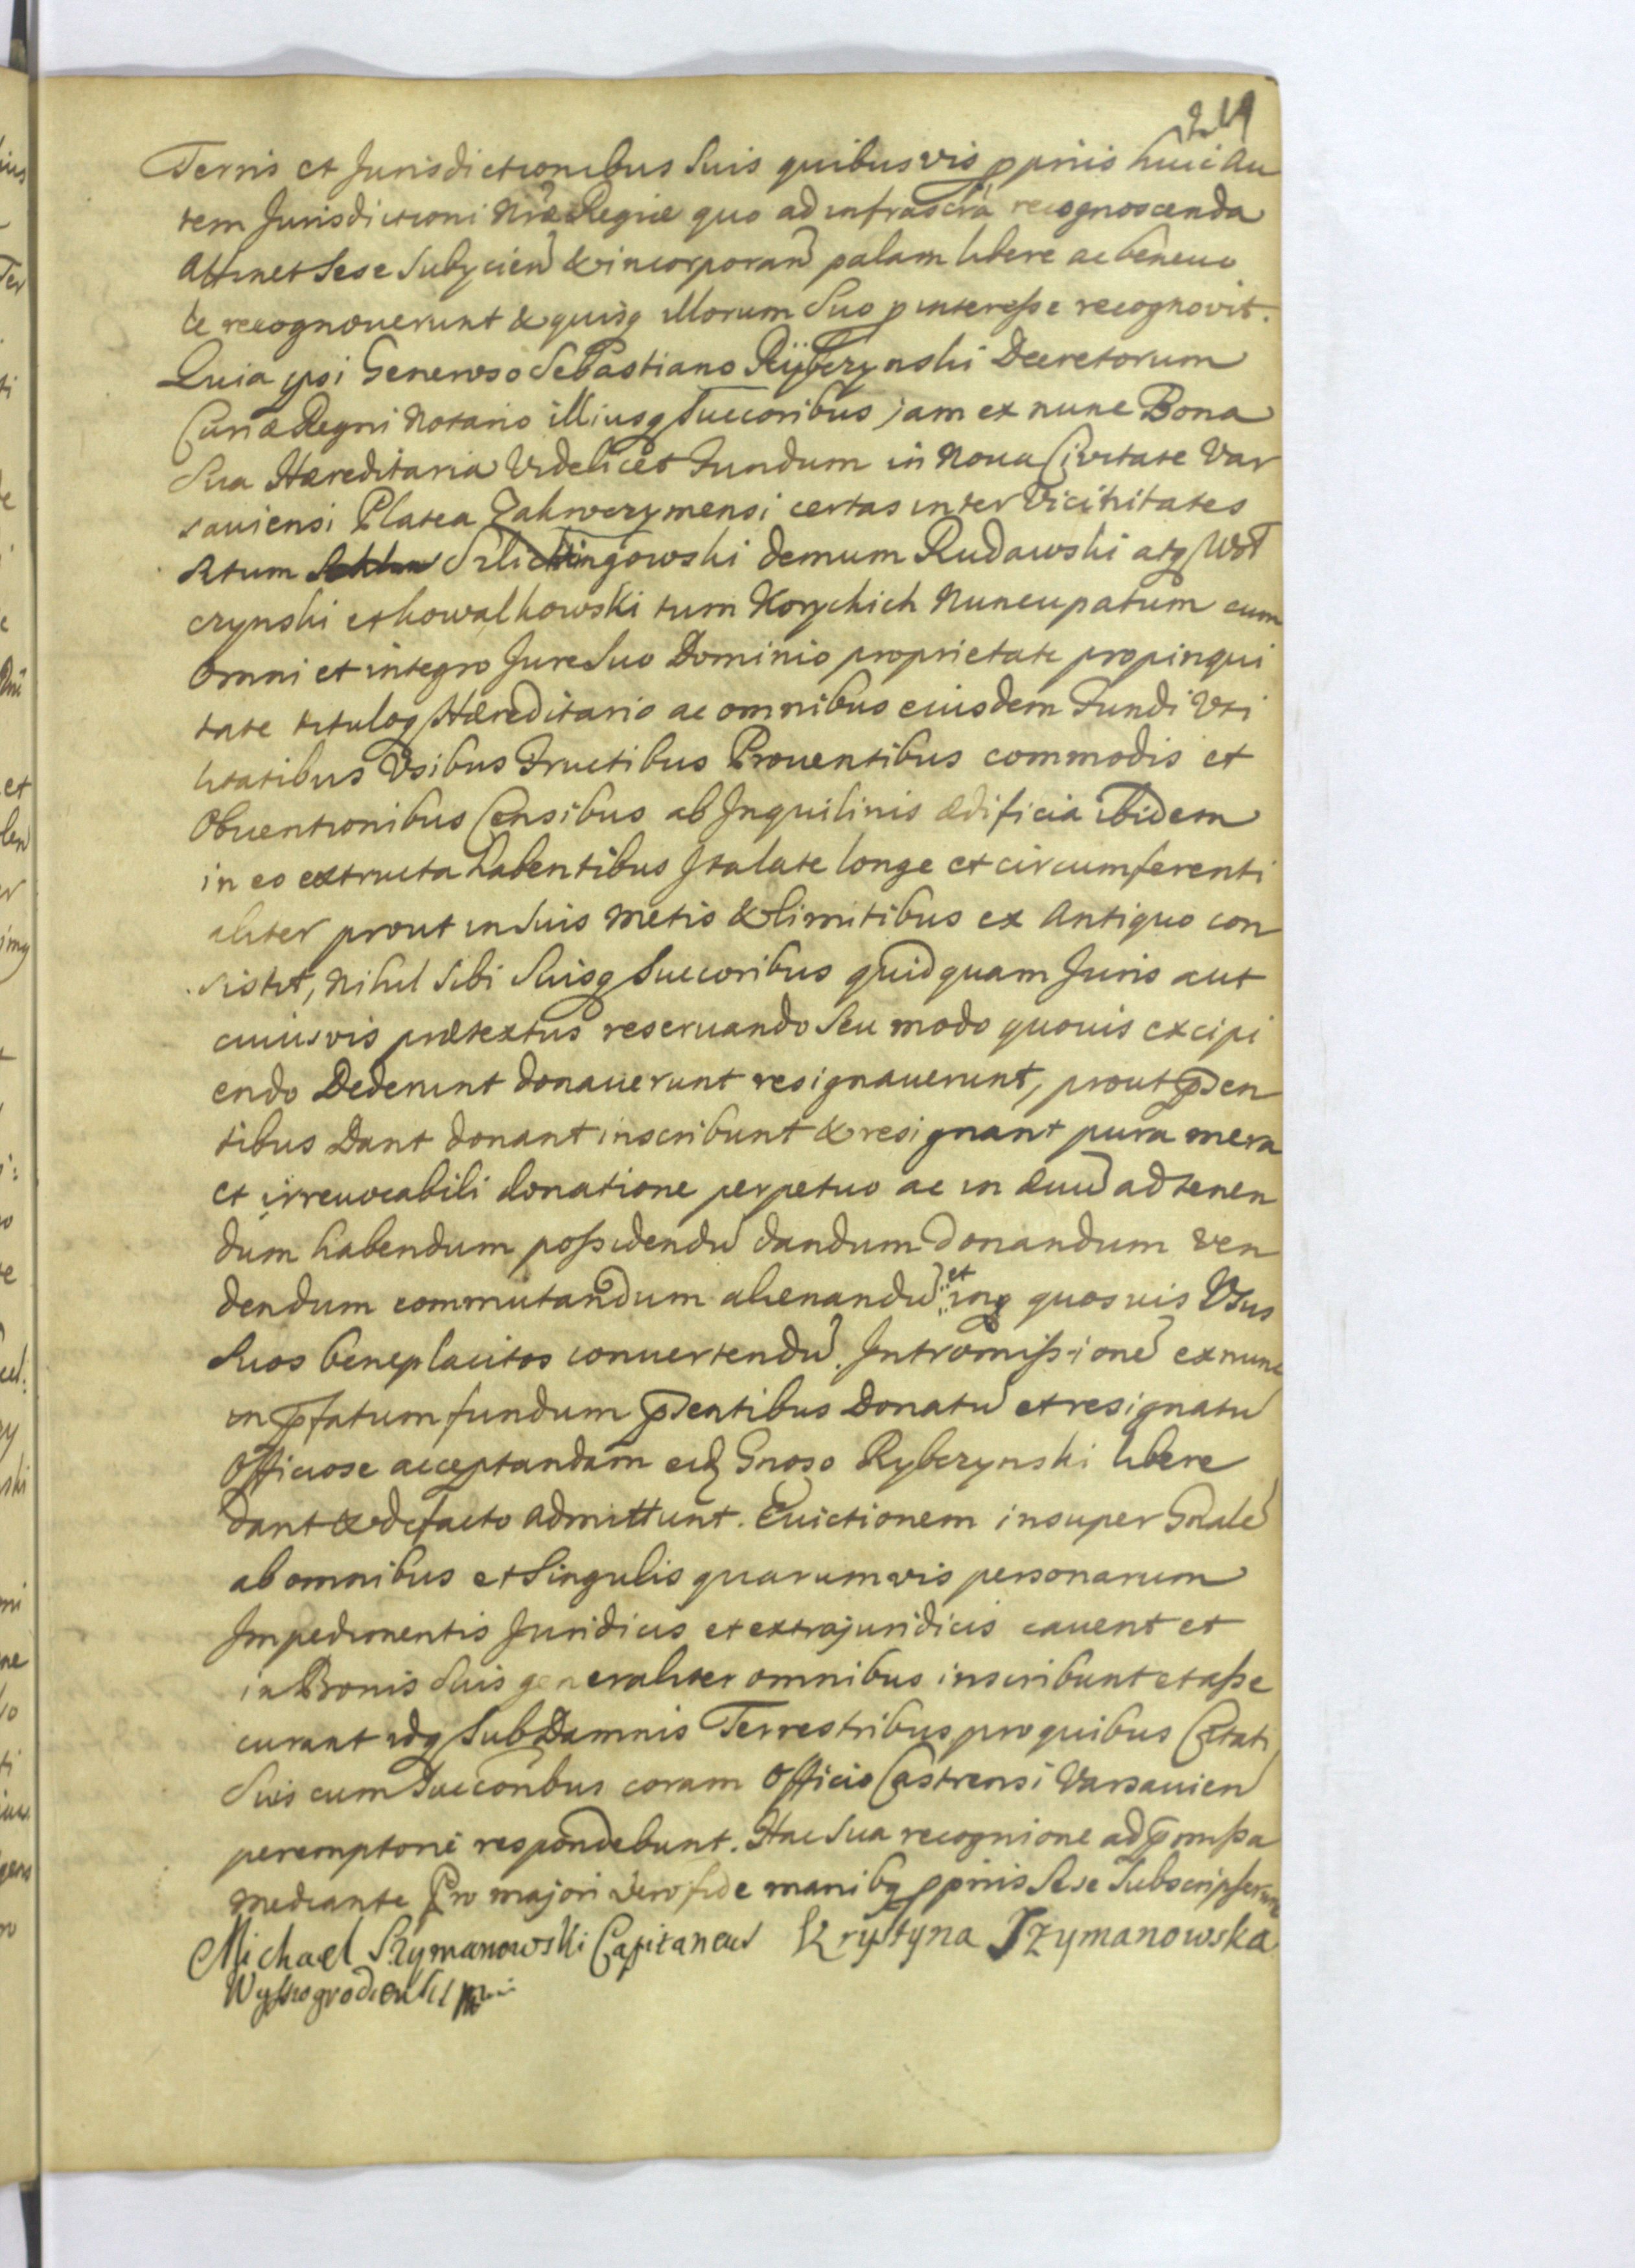 219
Terris et Jurisdictionibus Suis quibusvis ppriis huic Au
tem Jurisdictioni Nrae Regiae quo ad infrascra recognoscenda
attinet Sese Subycien & incorporan palam libere ac beneuo
le recognouerunt & quisq illorum Suo p interesse recognovit.
Quia ipsi Generoso Sebastiano Rÿbczynski Decretorum
Curiae Regni Notario illiusq Succoribus jam ex nunc Bona
Sua Haereditaria Videlicet Fundum in Noua Civitate Var
sauiensi Platea Zakroczymensi certas inter Vicinitates
situm Szlichtingowski demum Rudawski atq Wol
czynski et Kowalkowski tum Korychich Nuncupatum cum
Omni et integro Jure Suo Dominio proprietate propinqui
tate tituloq Haereditario ac omnibus eiusdem Fundi Vti
litatibus Vsibus Fructibus Prouentibus commodis et
Obuentionibus Censibus ab Inquilinis aedificia ibidem
in eo extructa habentibus Ita late longe et circumferenti
aliter prout in Suis Metis & limitibus ex Antiquo con
sistit, Nihil Sibi Suisq Succoribus quidquam Juris aut
cuiusvis praetextus reseruando Seu modo quouis excipi
endo Dederunt donauerunt resignauerunt, prout pSen
tibus Dant donant inscribunt & resignant pura mera
et irreuocabili donatione perpetuo ac in aeuu ad tenen
dum habendum possidendu dandum donandum Ven
dendum commutandum alienandu et inq quosuis Vsus
Suos beneplacitos conuertendu. Intromissione ex nunc
in pfatum fundum pSentibus Donatu et resignatu
Officiose acceptandam eid Gnoso Rybczynski libere
dant & de facto admittunt. Euictionem insuper Gnale
ab omnibus et Singulis quarumvis personarum
Impedimentis Juridicis et extrajuridicis cauent et
in Bonis Suis generaliter omnibus inscribunt et asse
curant idq Sub Damnis Terrestribus pro quibus Citati
Suis cum Succoribus coram Officio Castrensi Varsauien
peremptorie respondebunt. Hac Sua recognione ad pmissa
mediante Pro majori Vero fide manibq ppriis Sese Subscripserunt
Michael Szymanowski Capitaneus Krystyna Szymanowska
Wyssogrodensis mp